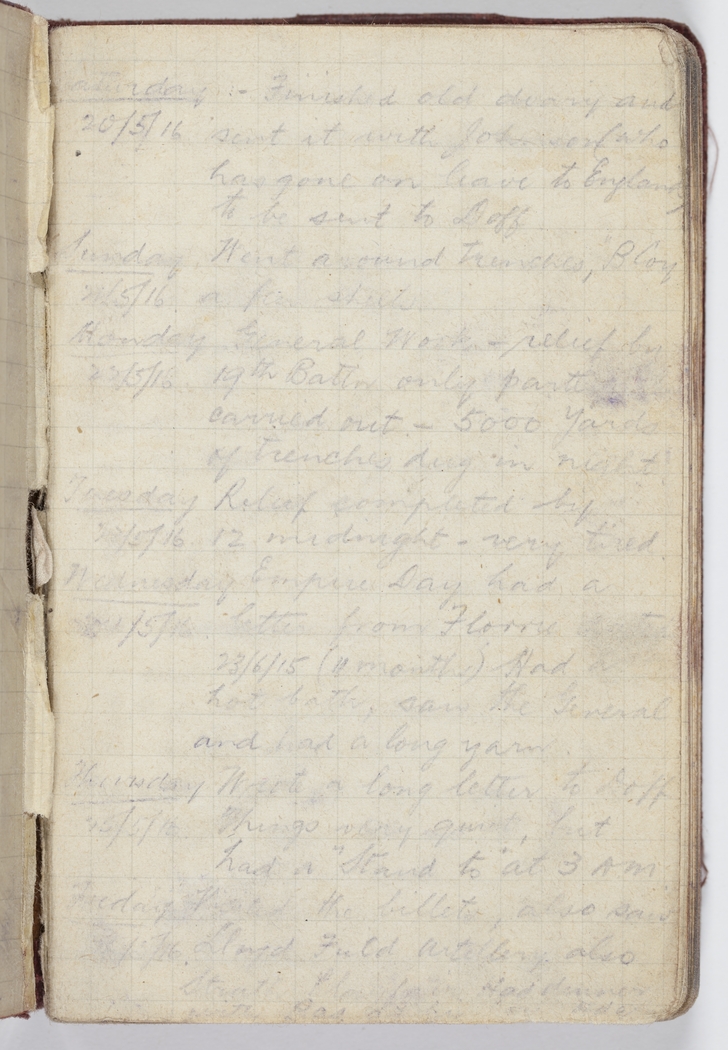 Saturday :- Finished old diary and
20/5/16 sent it with who
has gone on leave to England
to be sent to Doff
Sunday Went around trenches, B Coy
21/5/16 a few
Monday General Work - relief by
22/5/16 19th Battn only
carried out - 5000 Yards
of trenches dug in night
Tuesday Relief completed by
23/5/16 12 midnight - very tired
Wednesday Empire Day had a
24/5/16 letter from Florrie
23/6/15 (11 months) Had a
hot bath, saw the General
and had a long yarn.
Thursday Wrote a long letter to Doff
25/5/16 Things very quiet, but
had a "Stand to" at 3 AM
Friday the billets, also saw
26/5/16 Lloyd Field Artillery also
Had dinner